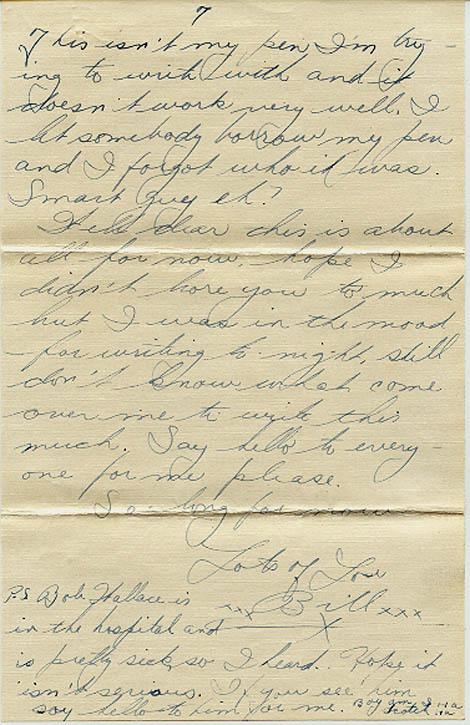 7
This isn't my pen I'm try-
ing to write with and it
doesn't work very well. I
let somebody borrow my pen
and I forgot who it was.
Smart guy eh?
Well dear this is about
all for now, hope I
didn't bore you to much
but I was in the mood
for writing to-night, still
don't know what come
over me to write this
much. Say hello to every-
one for me please.
So-long for now
Lots of Love
xxx Bill xxx
x
P.S Bob Wallace is
in the hospital and
is pretty sick, so I heard. Hope it
isn't serious. If you see him
say hello to him for me. Boy am I